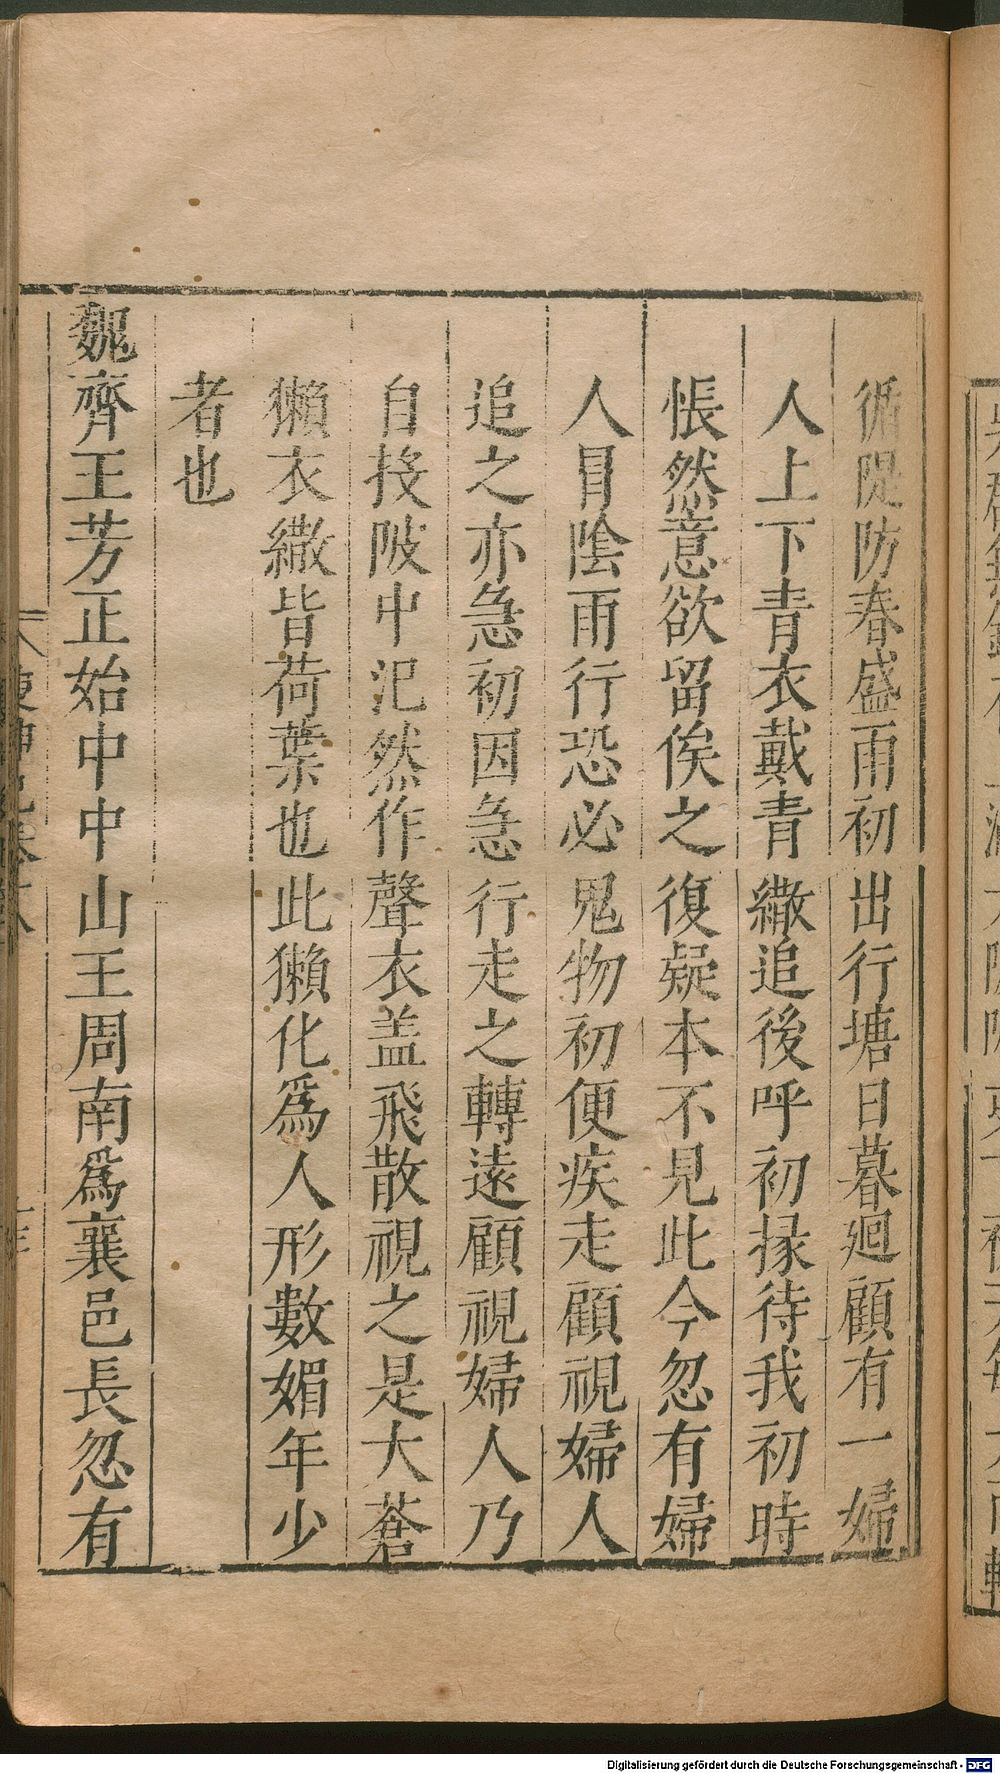 循隄防春盛雨初出行塘日暮廻顧有一婦
人上下青衣戴青繖追後呼初掾待我初時
悵然意欲留俟之復疑本不見此今忽有婦
人冐陰雨行恐必鬼物初便疾走顧視婦人
追之亦急初因急行走之轉遠顧視婦人乃
自投陂中汜然作聲衣盖飛散視之是大蒼
獺衣繖皆荷葉也此獺化爲人形數媚年少
者也
魏齊王芳正始中中山王周南爲襄邑長忽有
Digitalisierung gefördert durch die Deutsche Forschungsgemeinschaft - DFG